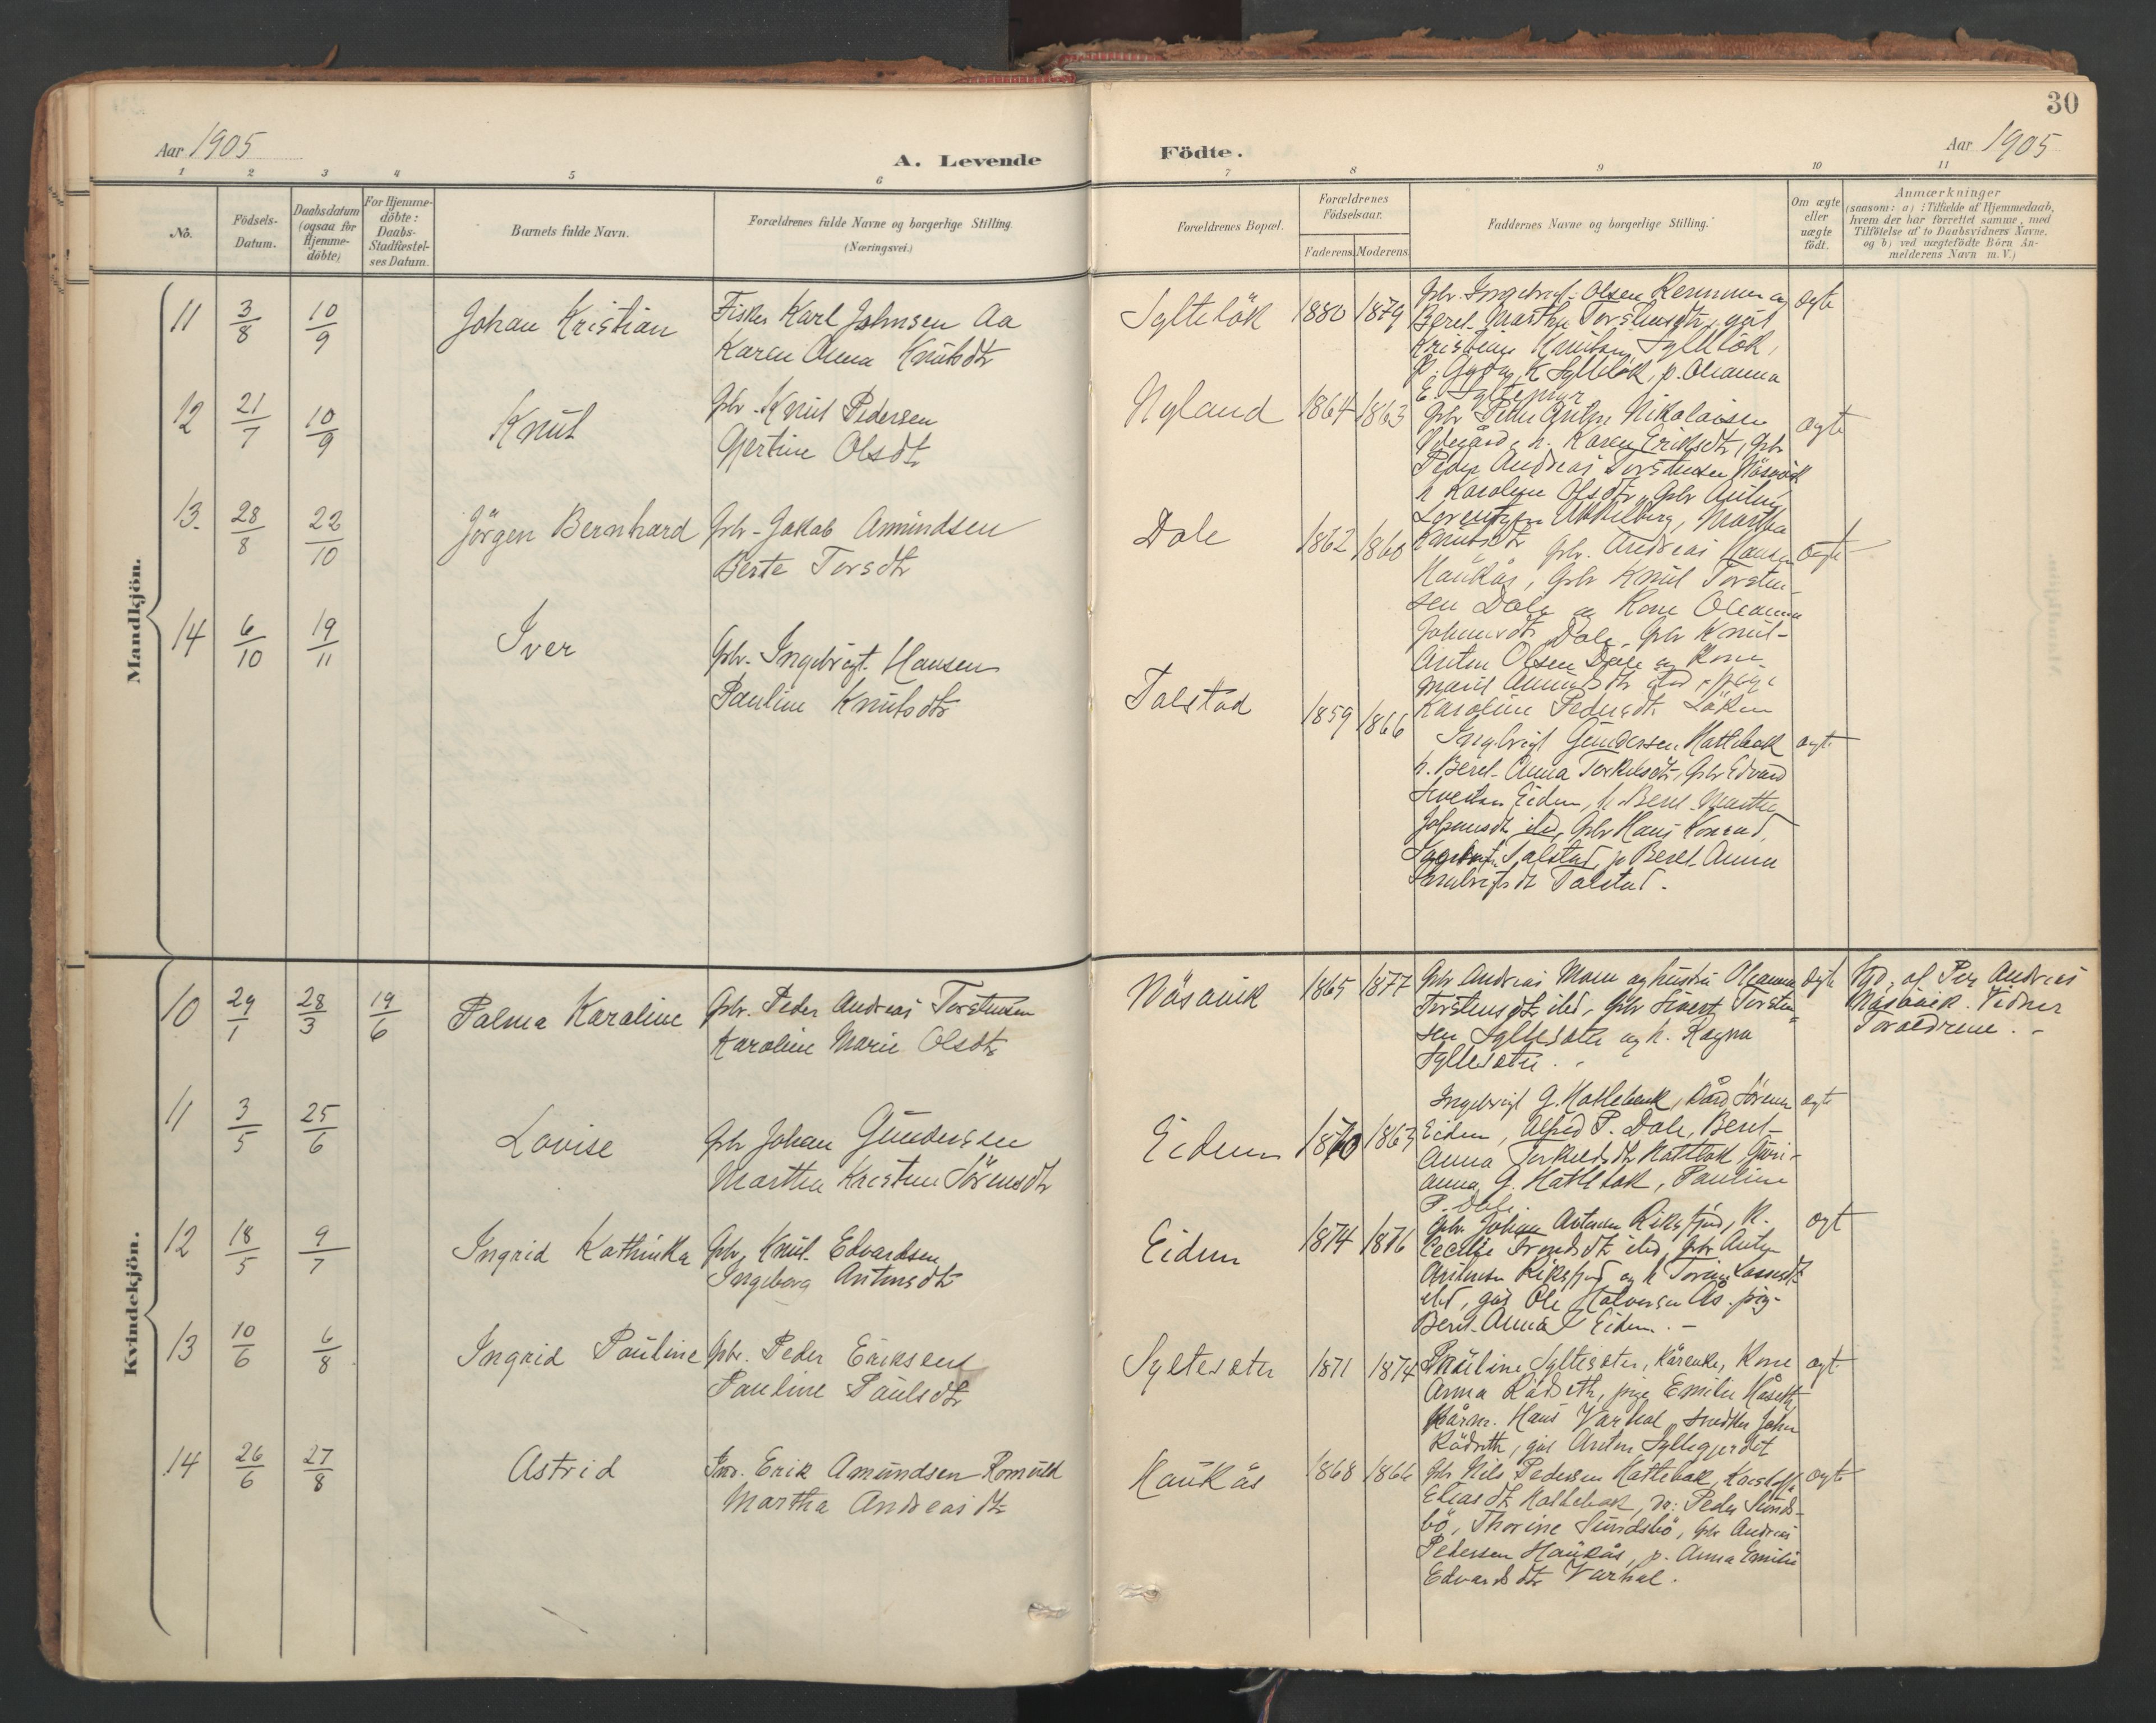 30
Aar 1905
A. Levende
Födte.
Aar 1905
1 2 3 4 5 6 7 8 9 10 11
No.
Födsels-
Datum.
Daabsdatum
(ogsaa for
Hjemme-
döbte)
For Hjemme-
döbte:
Daabs-
Stadfæstel-
ses Datum.
Barnets fulde Navn.
Forældrenes fulde Navne og borgerlige Stilling.
(Næringsvei.)
Forældrenes Bopæl.
Forældrenes
Födselsaar.
Faderens. Moderens.
Faddernes Navne og borgerlige Stilling.
Om ægte
eller
uægte
födt.
Anmærkninger
(saasom: a) i Tilfælde af Hjemmedaab,
hvem der har forrettet samme, med
Tilföielse af to Daabsvidners Navne.
og b) ved uægtefödte Börn An-
melderens Navn m. V.)
Mandkjön.
11 3/8 10/9 Johan Kristian
Fisker Karl Johnsen Aa
Karen Anna Knutsdtr
Syltelök 1880 1879
Gbr. Ingebrigt Olsen Remmen og
Beret Martha Torstensdtr, gut
Kristian Knutsen Syltelök,
p. Gyda K Syltelök, p. Oleanna
E. Syltemyr
ægte
12 21/7 10/9 Knut
Gbr. Knut Pedersen
Gjertine Olsdtr
Nyland 1864 1863
Gbr Peder Anton Nikolaisen
Ödegård, h. Karen Eriksdtr, Gbr
Peder Andreas Torstensen Näsavik
h Karoline Olsdtr, Gbr Anton
Lorentzen Martha
Knutsdtr
ægte
13. 28/8 22/10 Jörgen Bernhard
Gbr- Jakob Amundsen
Berte Torsdtr
Dale 1862 1860
Gbr. Andreas Hansen
Haukås, Gbr Knut Torsten
sen Dale og Kone Oleanna
Johnsdtr Dale, Gbr Knut-
Anton Olsen Dale og Kone
Marit Amundsdtr sted, pige
Karoline Pedersdtr Löken
ægte
14 6/10 19/11 Iver
Gbr. Ingebrigt Hansen
Pauline Knutsdtr
Talstad 1859 1866
Ingebrigt Gundersen Hattebak
h. Beret-Anna Torkelsdtr, Gbr Edvard
Sivertsen Eidem, h. Beret Martha
Johansdt sted, Gbr Hans Konrad
Talstad, p Beret Anna
Ingebrigtsdt Talstad.
ægt.
Kvindekjön.
10 29/1 28/3 19/6 Palma Karoline
Gbr. Peder Andreas Torstensen
Karoline Marie Olsdtr
Näsavik 1865 1877
Gbr Andreas Moen og hustru Oleanna
Torstensdtr sted, Gbr Sivert Torsten-
sen Syltesæter og h. Ragna
Syltesæter.
ægte
Hjd. af Per Andreas
Näsavik. Vidner
Foreldrene. -
11 3/5 25/6 Lovise
Gbr Johan Gundersen
Martha Kristine Sörensdtr
Eidem 1870 1863
Ingebrigt G. Hattebak, Bård Sörensen
Eidem, Alfred P. Dale, Beret-
Anna Torkelsdtr Hattbak Guri-
anna G. Hattbak, Pauline
P. Dale.
ægte
12 18/5 9/7 Ingrid Kathinka
Gbr, Knut Edvardsen
Ingeborg Antonsdtr
Eidem 1874 1876
Gbr Johan Antonsen Riksfjord, K.
Cecilie Trondsdtr sted, Gbr Anton
Antonsen Riksfjord og h Torine Lassesdtr
sted, gut Ole Halvorsen Ås. pig-
Beret-Anna Eidem. -
ægt
13 10/6 6/8 Ingrid Pauline
Gbr. Peder Eriksen
Pauline Paulsdtr
Syltesæter 1871 1874
Pauline Syltesæter, Kårenke, Kone
Anna Rödseth, pige Emilie Håseth
Kårm. Hans Varhol, snedker Johan
Rödseth, gut Anton Syltegjerdet
ægt.
14 26/6 27/8 Astrid
Ind. Erik Amundsen Romuld
Martha Andreasdtr
Haukås 1868 1866
Gbr Nils Pedersen Hattebak,
Eliasdtr Hattebak, do: Peder Sunds-
bö, Thorine Sundsbö, Gbr Andreas
Pedersen Haukås, p. Anna Emilie
Edvardsdtr Varhol.
ægte